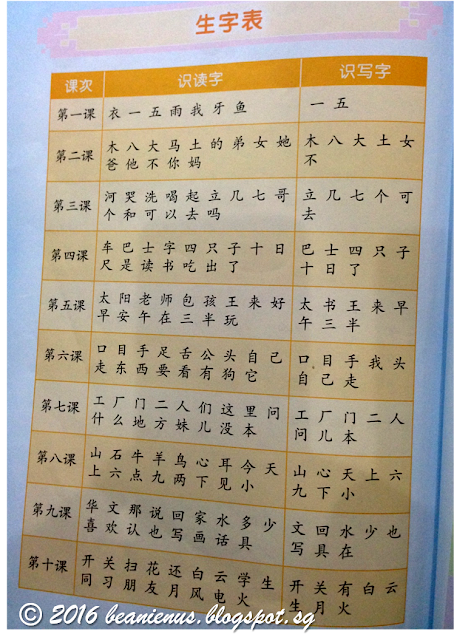 生字表
课次 识读字 识写字
第一课 衣 一 五 雨 我 牙 鱼 一 五
第二课 木 八 大 马 土 的 弟 女 她 木 八 大 土 女
爸 他 不 你 妈 不
第三课 河 哭 洗 喝 起 立 几 七 哥 立 几 七 个 可
个 和 可 以 去 吗 去
第四课 车 巴 士 字 四 只 子 十 日 巴 士 四 只 子
尺 是 读 书 吃 出 了 十 日 了
第五课 太 阳 老 师 包 孩 王 来 好 太 书 王 来 早
早 安 午 在 三 半 玩 午 三 半
第六课 口 目 手 足 舌 公 头 自 己 口 目 手 我 头
走 东 西 要 看 有 狗 它 自 己 走
第七课 工 厂 门 二 人 们 这 里 问 工 厂 门 二 人
什 么 地 方 妹 儿 没 本 问 儿 本
第八课 山 石 牛 羊 鸟 心 耳 今 天 山 心 天 上 六
上 六 点 九 两 下 见 小 九 下 小
第九课 华 文 那 说 回 家 水 多 少 文 回 水 少 也
喜 欢 认 也 写 画 话 具 写 具 在
第十课 开 关 扫 花 还 白 云 学 生 开 关 有 白 云
同 习 朋 友 月 风 电 火 生 月 火
© 2016 beanienus.blogspot.sg